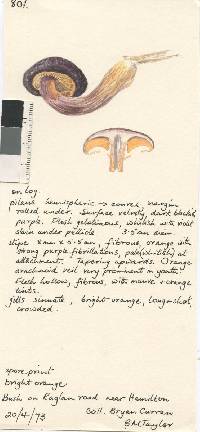 801.
on log.
pileus hemispheric → convex, margin
rolled under. Surface velvety, dark blackish
purple. Flesh gelatinous, whitish with violet
stain under pellicle 3.5cm diam.
stipe 8cm x 0.5cm, fibrous, orange with
strong purple fibrillations, pale(whitish) at
attachment. Tapering upwards. Orange
arachnoid veil very prominent in youth.
Flesh hollow, fibrous, with mauve & orange
tints.
gills sinuate, bright orange, long & short,
crowded.
spore print
bright orange
Bush on Raglan road near Hamilton
20/4/73 Coll. Bryan Curran
BM Taylor